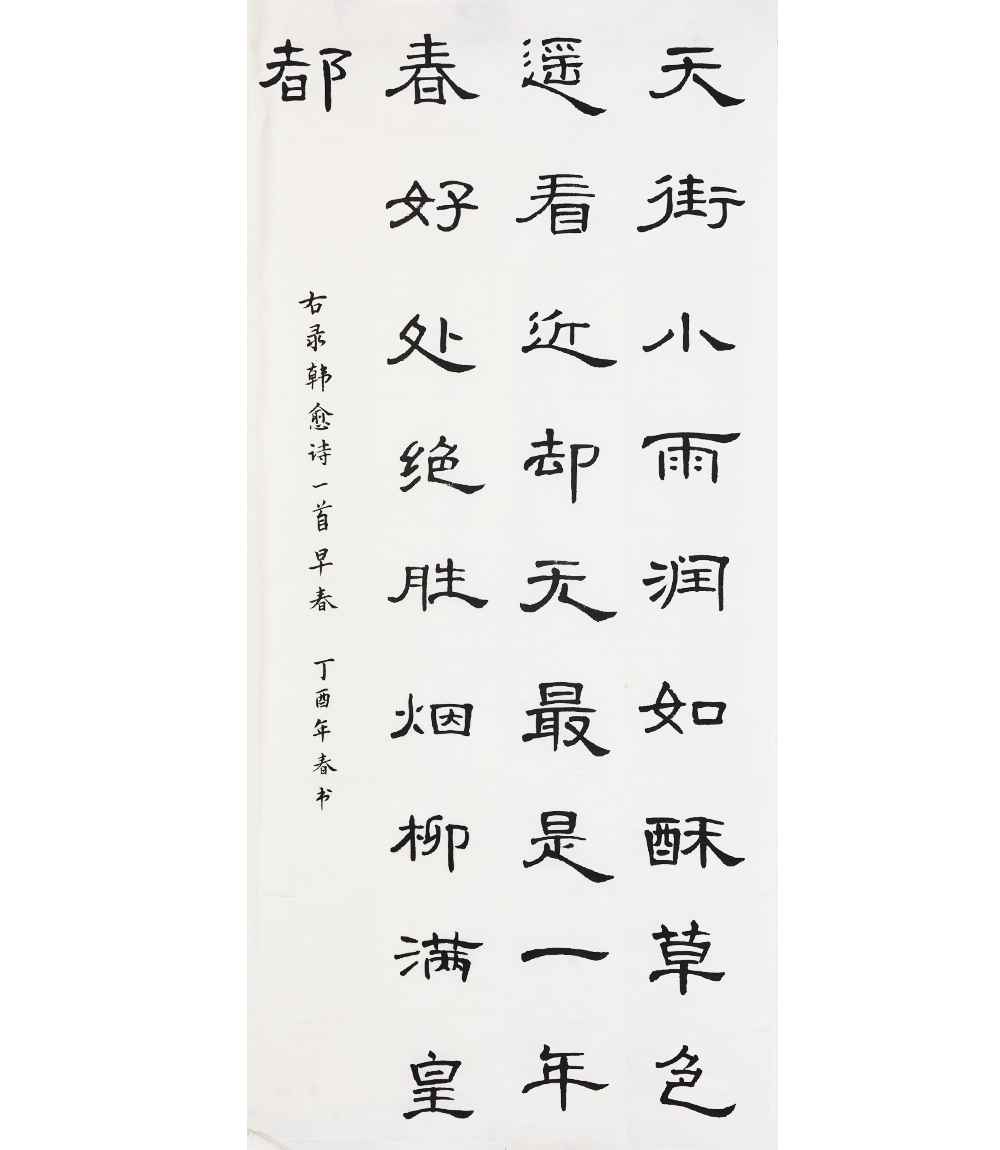 天街小雨润如酥草色
遥看近却无最是一年
春好处绝胜烟柳满皇
都
右录韩愈诗一首早春 丁酉年春书